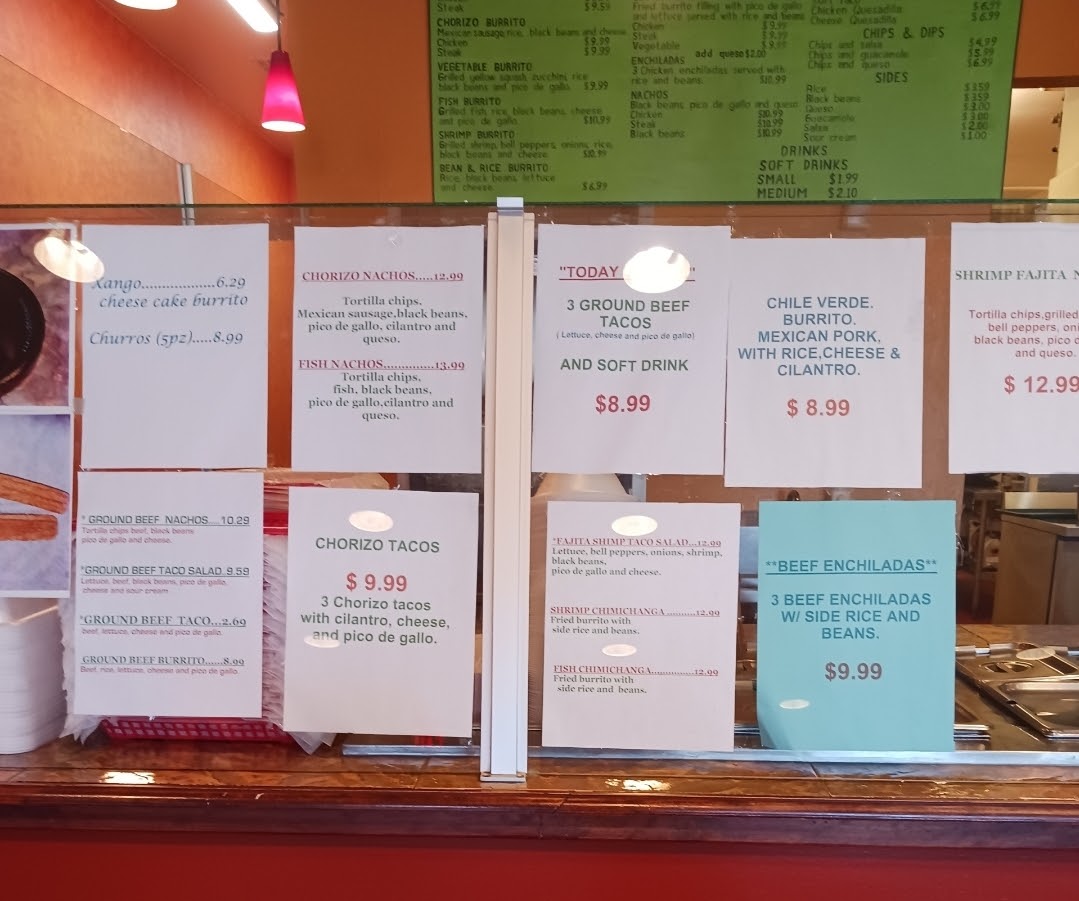 Steak $9.59
CHORIZO BURRITO
Mexican sausage, rice, black beans and cheese
Chicken $9.99
Steak $9.99
VEGETABLE BURRITO
Grilled yellow squash zucchini, rice
black beans and pico de gallo. $9.99
FISH BURRITO
Grilled fish rice, black beans, cheese,
and pico de gallo. $10.99
SHRIMP BURRITO
Grilled shrimp, bell peppers, onions, rice,
black beans and cheese $10.99
BEAN & RICE BURRITO
Rice, black beans, lettuce
and cheese. $6.99
Fried burrito filling with pico de gallo
and lettuce served with rice and beans
Chicken $9.99
Steak $9.99
Vegetable $9.99
add queso $2.00
ENCHILADAS
3 Chicken enchiladas served with
rice and beans. $10.99
NACHOS
Black beans, pico de gallo and queso
Chicken $10.99
Steak $10.99
Black beans $10.99
Chicken Quesadilla $6.99
Cheese Quesadilla $6.99
CHIPS & DIPS
Chips and salsa $4.99
Chips and guacamole $5.99
Chips and queso $6.99
SIDES
Rice $3.59
Black beans $3.59
Queso $3.00
Guacamole $3.00
Salsa $2.00
Sour cream $1.00
DRINKS
SOFT DRINKS
SMALL $1.99
MEDIUM $2.10
Xango.................6.29
cheese cake burrito
Churros (5pz).....8.99
CHORIZO NACHOS.....12.99
Tortilla chips,
Mexican sausage,black beans,
pico de gallo, cilantro and
queso.
FISH NACHOS..............13.99
Tortilla chips,
fish, black beans,
pico de gallo,cilantro and
queso.
"TODAY
3 GROUND BEEF
TACOS
( Lettuce, cheese and pico de gallo)
AND SOFT DRINK
$8.99
CHILE VERDE.
BURRITO.
MEXICAN PORK,
WITH RICE,CHEESE &
CILANTRO.
$ 8.99
SHRIMP FAJITA N
Tortilla chips,grilled
bell peppers, oni
black beans, pico d
and queso.
$ 12.99
* GROUND BEEF NACHOS....10.29
Tortilla chips beef, black beans
pico de gallo and cheese.
*GROUND BEEF TACO SALAD.9.59
Lettuce, beef, black beans, pico de gallo,
cheese and sour cream
*GROUND BEEF TACO....2.69
beef, lettuce, cheese and pico de gallo.
GROUND BEEF BURRITO......8.99
Beef, rice, lettuce, cheese and pico de gallo.
CHORIZO TACOS
$ 9.99
3 Chorizo tacos
with cilantro, cheese,
and pico de gallo.
*FAJITA SHIMP TACO SALAD...12.99
Lettuce, bell peppers, onions, shrimp,
black beans,
pico de gallo and cheese.
SHRIMP CHIMICHANGA ..........12.99
Fried burrito with
side rice and beans.
FISH CHIMICHANGA..............12.99
Fried burrito with
side rice and beans.
**BEEF ENCHILADAS**
3 BEEF ENCHILADAS
W/ SIDE RICE AND
BEANS.
$9.99